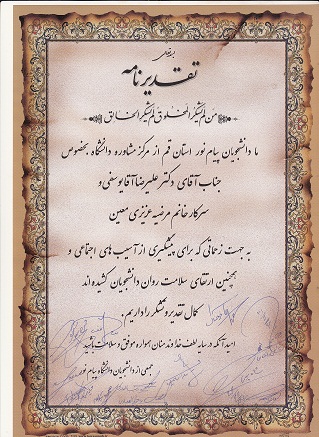 تقدیرنامه
من لم یشکر المخلوق لم یشکر الخالق
ما دانشجویان پیام نور استان قم از مرکز مشاوره دانشگاه بخصوص
جناب آقای دکتر علیرضا آقایوسفی و
سرکار خانم مرضیه عزیزی معین
به جهت زحماتی که برای پیشگیری از آسیب های اجتماعی و
همچنین ارتقای سلامت روان دانشجویان کشیده اند
کمال تقدیر و تشکر را داریم.
امید آنکه در سایه لطف خداوند منان همواره موفق و سلامت باشید
جمعی از دانشجویان دانشگاه پیام نور